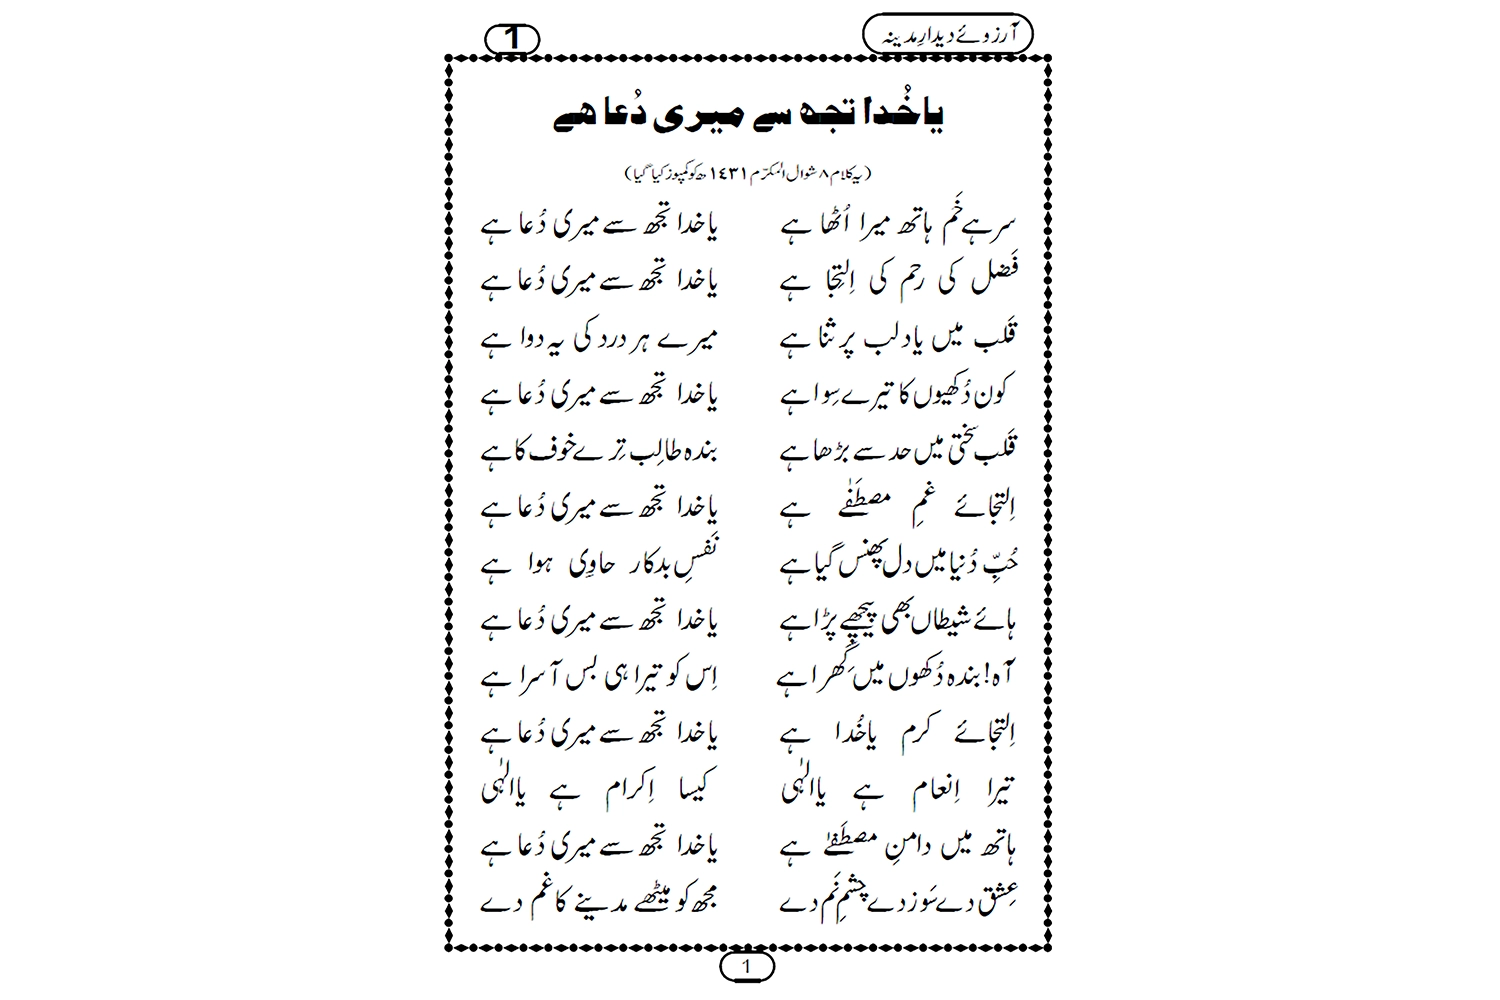 آرزوئے دیدارِ مدینہ 1
یا خُدا تجھ سے میری دُعا ھے
(یہ کلام ۸ شوال المکرّم ۱٤۳۱ ھ کو کمپوز کیا گیا)
سر ہے خَم ہاتھ میرا اُٹھا ہے یا خدا تجھ سے میری دُعا ہے
فَضل کی رحم کی اِلتِجا ہے یا خدا تجھ سے میری دُعا ہے
قَلب میں یاد لب پر ثنا ہے میرے ہر درد کی یہ دوا ہے
کون دُکھیوں کا تیرے سِوا ہے یا خدا تجھ سے میری دُعا ہے
قَلب سختی میں حد سے بڑھا ہے بندہ طالِب تِرے خوف کا ہے
اِلتجائے غمِ مصطَفٰے ہے یا خدا تجھ سے میری دُعا ہے
حُبِّ دُنیا میں دل پھنس گیا ہے نَفسِ بدکار حاوِی ہوا ہے
ہائے شیطاں بھی پیچھے پڑا ہے یا خدا تجھ سے میری دُعا ہے
آہ! بندہ دُکھوں میں گِھرا ہے اِس کو تیرا ہی بس آسرا ہے
اِلتجائے کرم یا خُدا ہے یا خدا تجھ سے میری دُعا ہے
تیرا اِنعام ہے یاالٰہی کیسا اِکرام ہے یاالٰہی
ہاتھ میں دامنِ مصطَفٰے ہے یا خدا تجھ سے میری دُعا ہے
عِشق دے سَوز دے چشمِ نَم دے مجھ کو میٹھے مدینے کا غم دے
1